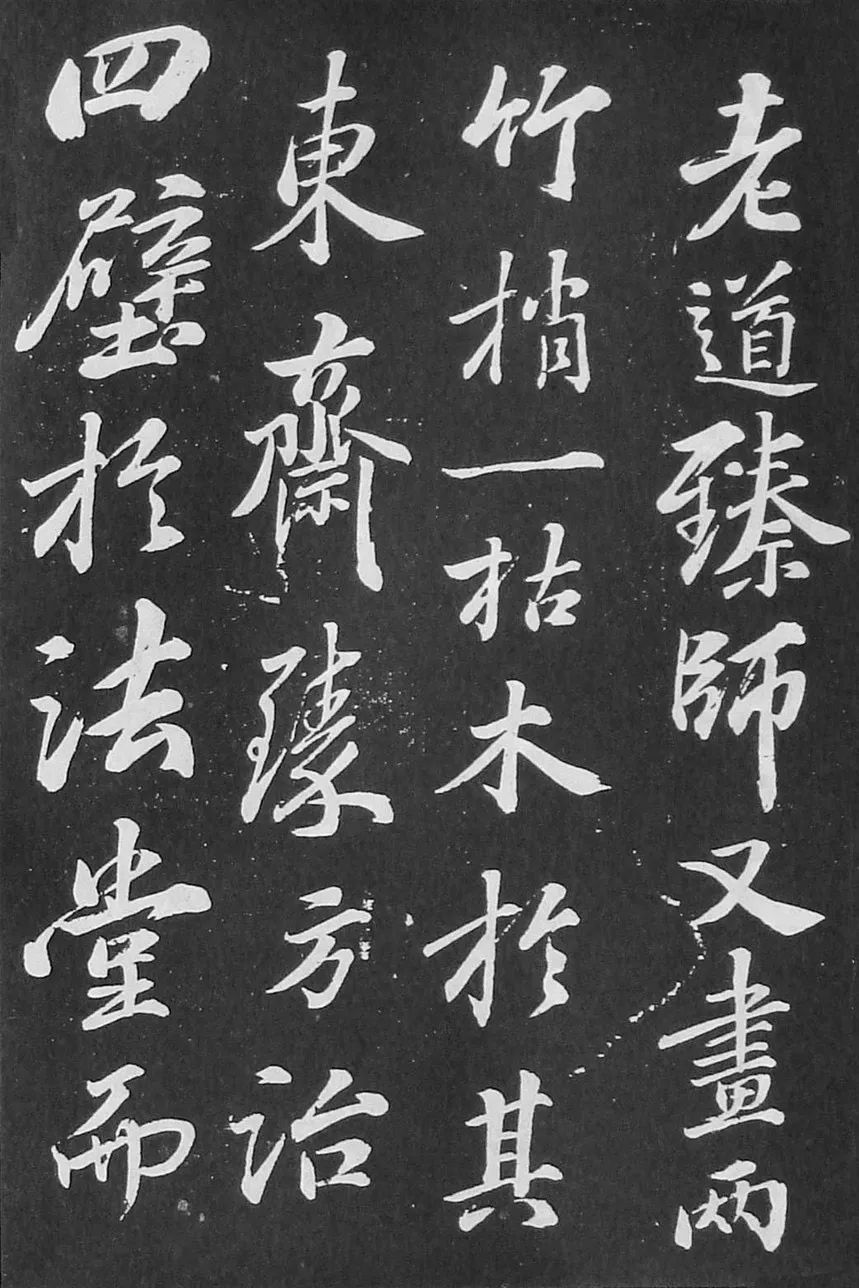 老道臻師又畫兩
竹梢一枯木於其
東齋臻方治
四壁於法堂而